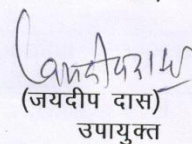 (जयदीप दास)
उपायुक्त